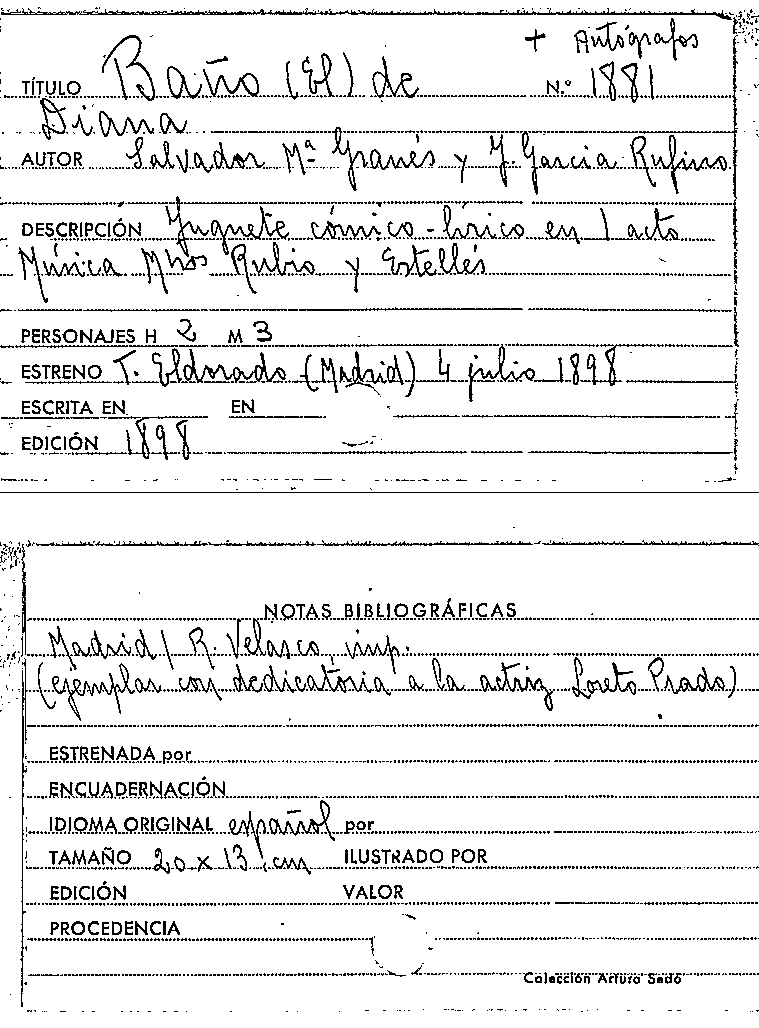 + Autógrafos
TÍTULO Baño (El) de N.º 1881
Diana
AUTOR Salvador Mª Granés y J. Garcia Rufino
DESCRIPCIÓN Juguete cómico-lírico en 1 acto
Música Mtros Rubio y Estellés
PERSONAJES H 2 M 3
ESTRENO T. Eldorado (Madrid) 4 julio 1898
ESCRITA EN EN
EDICIÓN 1898
NOTAS BIBLIOGRÁFICAS
Madrid / R. Velasco, imp.
(ejemplar con dedicatoria a la actriz Loreto Prado)
ESTRENADA por
ENCUADERNACIÓN
IDIOMA ORIGINAL español por
TAMAÑO 20 x 13 cm ILUSTRADO POR
EDICIÓN VALOR
PROCEDENCIA
Colección Arturo Sedó